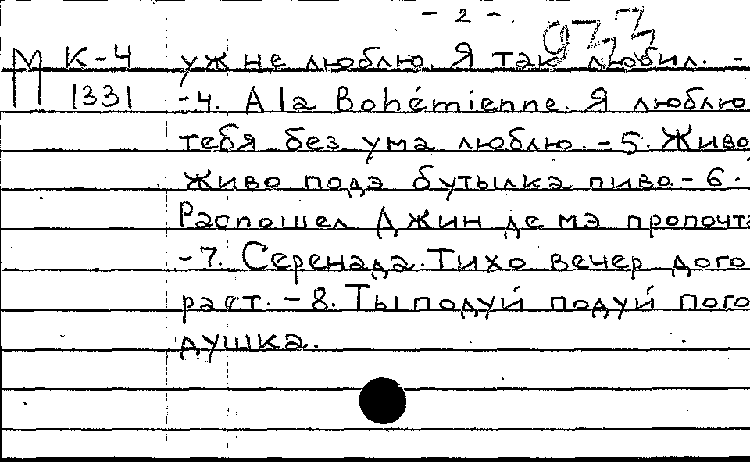 - 2 -.
9277
М К-4 уж не люблю. Я так любил. -
1331 -4. A la Bohémienne. Я люблю
тебя без ума люблю. -5. Живо
Живо подэ бутылка пива -6.
Распошел Джин де мэ пропочта
-7. Серенада. Тихо вечер дого
рает. -8. Ты подуй подуй пого
душка.